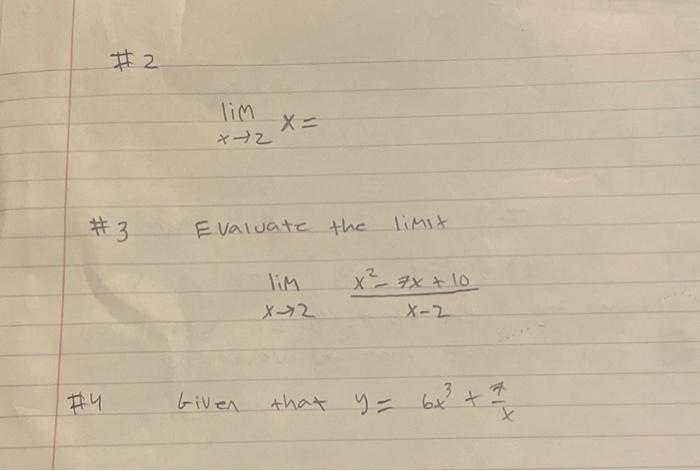 #2
lim x→2 x =
#3 Evaluate the limit
lim x→2 (x² - 7x + 10)/(x - 2)
#4 Given that y = 6x³ + 7/x